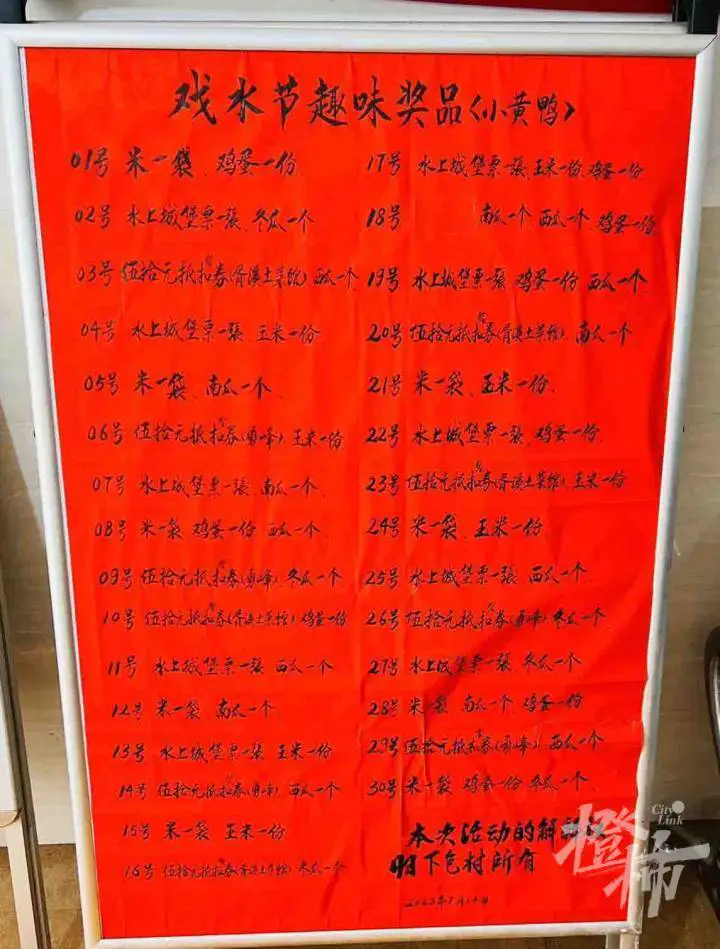 戏水节趣味奖品〈小黄鸭〉
01号 米一袋、鸡蛋一份
02号 水上城堡票一張、冬瓜一个
03号 伍拾元抵扣券(胥溪土菜馆) 西瓜一个
04号 水上城堡票一張、玉米一份
05号 米一袋、南瓜一个
06号 伍拾元抵扣券(勇峰)、玉米一份
07号 水上城堡票一張、南瓜一个
08号 米一袋 鸡蛋一份 西瓜一个
09号 伍拾元抵扣券(勇峰) 冬瓜一个
10号 伍拾元抵扣券(胥溪土菜馆) 鸡蛋一份
11号 水上城堡票一張 西瓜一个
12号 米一袋、南瓜一个
13号 水上城堡票一張 玉米一份
14号 伍拾元抵扣券(勇峰) 西瓜一个
15号 米一袋 玉米一份
16号 伍拾元抵扣券(胥溪土菜馆) 冬瓜一个
17号 水上城堡票一張、玉米一份、鸡蛋一份
18号 南瓜一个 西瓜一个 鸡蛋一份
19号 水上城堡票一張 鸡蛋一份 西瓜一个
20号 伍拾元抵扣券(胥溪土菜馆)、南瓜一个
21号 米一袋、玉米一份
22号 水上城堡票一張、鸡蛋一份
23号 伍拾元抵扣券(胥溪土菜馆)、玉米一份
24号 米一袋、玉米一份
25号 水上城堡票一張 西瓜一个
26号 伍拾元抵扣券(勇峰) 冬瓜一个
27号 水上城堡票一張、冬瓜一个
28号 米一袋 南瓜一个、鸡蛋一份
29号 伍拾元抵扣券(勇峰) 西瓜一个
30号 米一袋 鸡蛋一份 冬瓜一个
本次活动的解释权
归下包村所有
2023年7月14日
City Link
橙柿